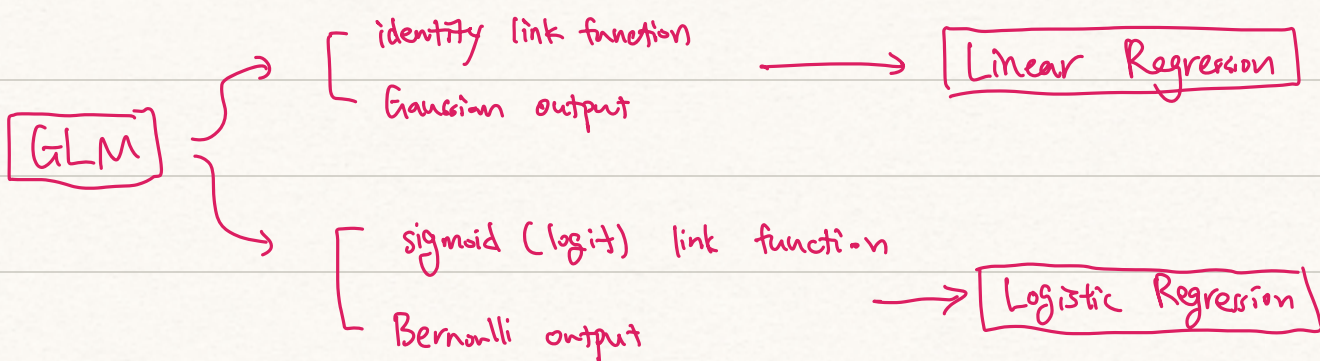 identity link function
Gaussian output
Linear Regression
GLM
sigmoid (logit) link function
Bernoulli output
Logistic Regression